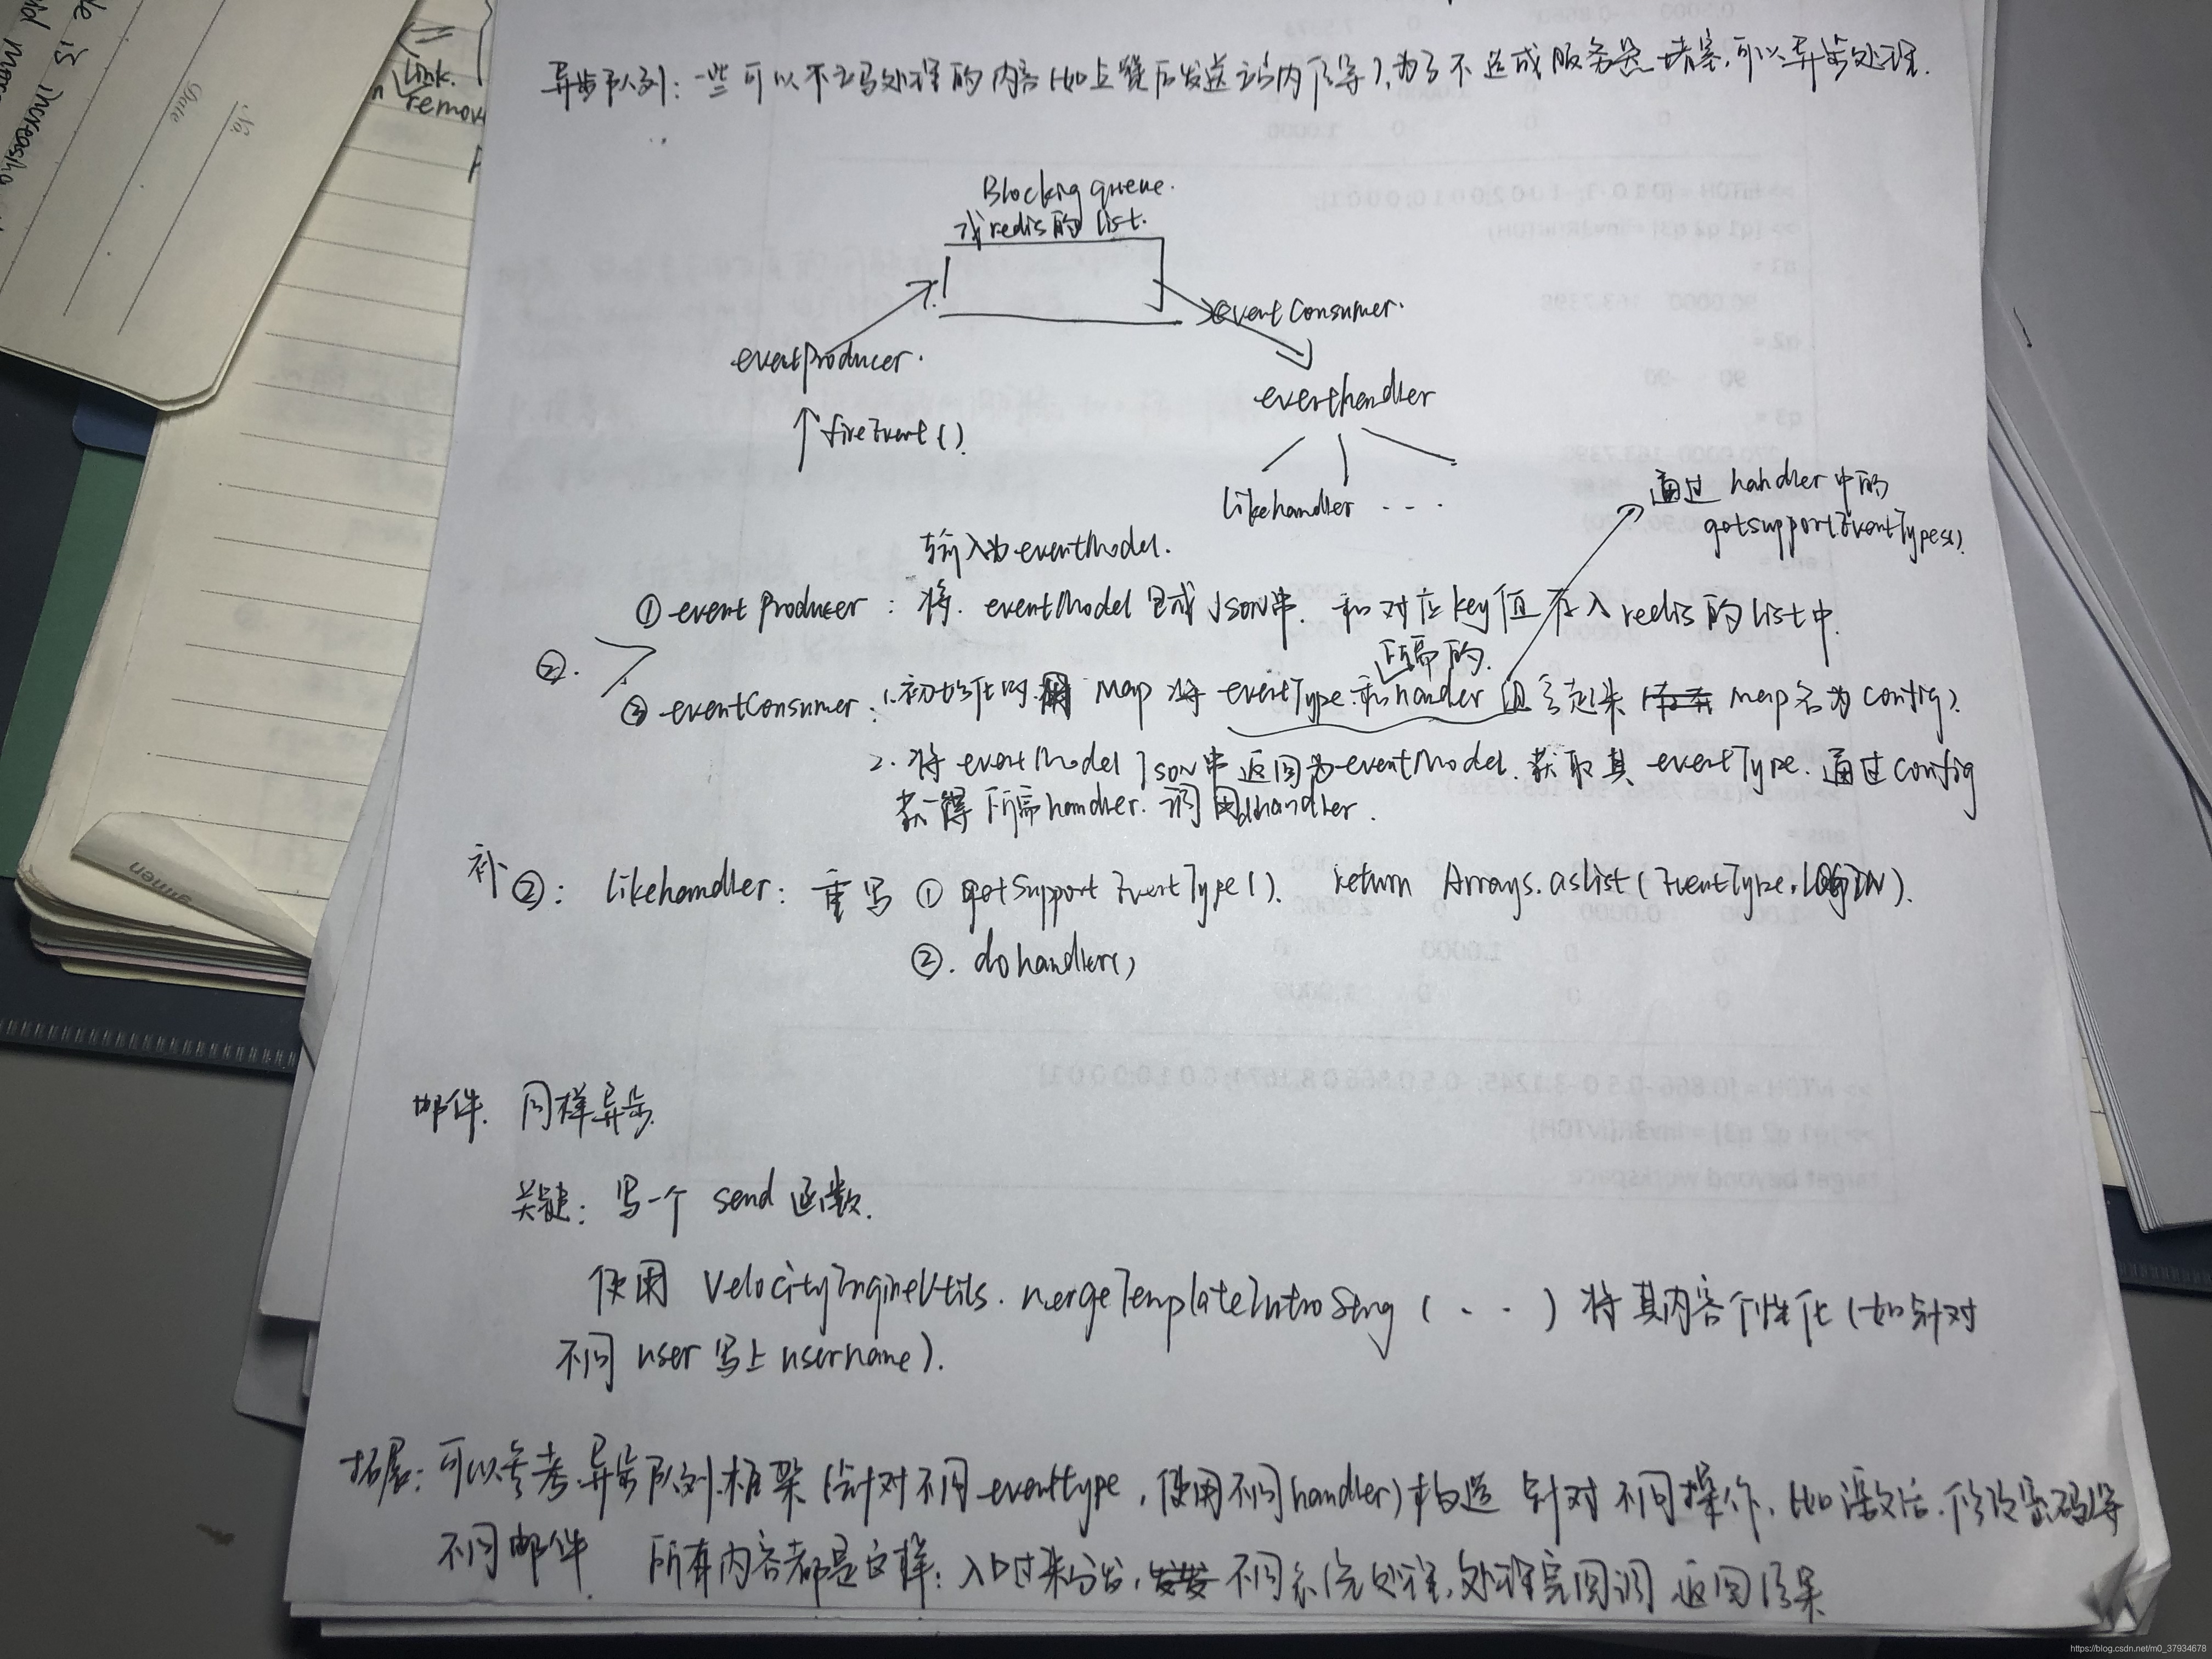 异步队列：一些可以不立马处理的内容（如点赞后发送站内信等），为了不造成服务器堵塞，可以异步处理.
Blocking queue.
或redis的list.
eventProducer.
↑fireEvent().
eventConsumer.
eventhandler
likehandler ...
通过handler中的
getsupportEventTypes().
输入为eventModel.
① eventProducer：将 eventModel 生成 Json串. 和对应key值存入redis的list中.
②.
所需的.
③ eventConsumer：1.初始化时.用 Map 将 eventType.和handler 组合起来（map名为config）.
2. 将 eventModel Json串 返回为eventModel. 获取其 eventType. 通过config
获得所需handler. 调用handler.
补②：likehandler：重写 ① getSupportEventType(). return Arrays.aslist(EventType.LOGIN).
②. dohandler()
邮件. 同样异步.
关键：写一个 send 函数.
使用 VelocityEngineUtils.mergeTemplateIntroSting (...) 将其内容个性化（如针对
不同 user 写上 username）.
拓展：可以参考异步队列框架（针对不同eventtype，使用不同handler）构造 针对不同操作，如激活.修改密码等
不同邮件. 所有内容都是这样：入口过来分发，不同系统处理，处理完回调 返回结果
Link.
remov
No.
Date
is increasing
https://blog.csdn.net/m0_37934678